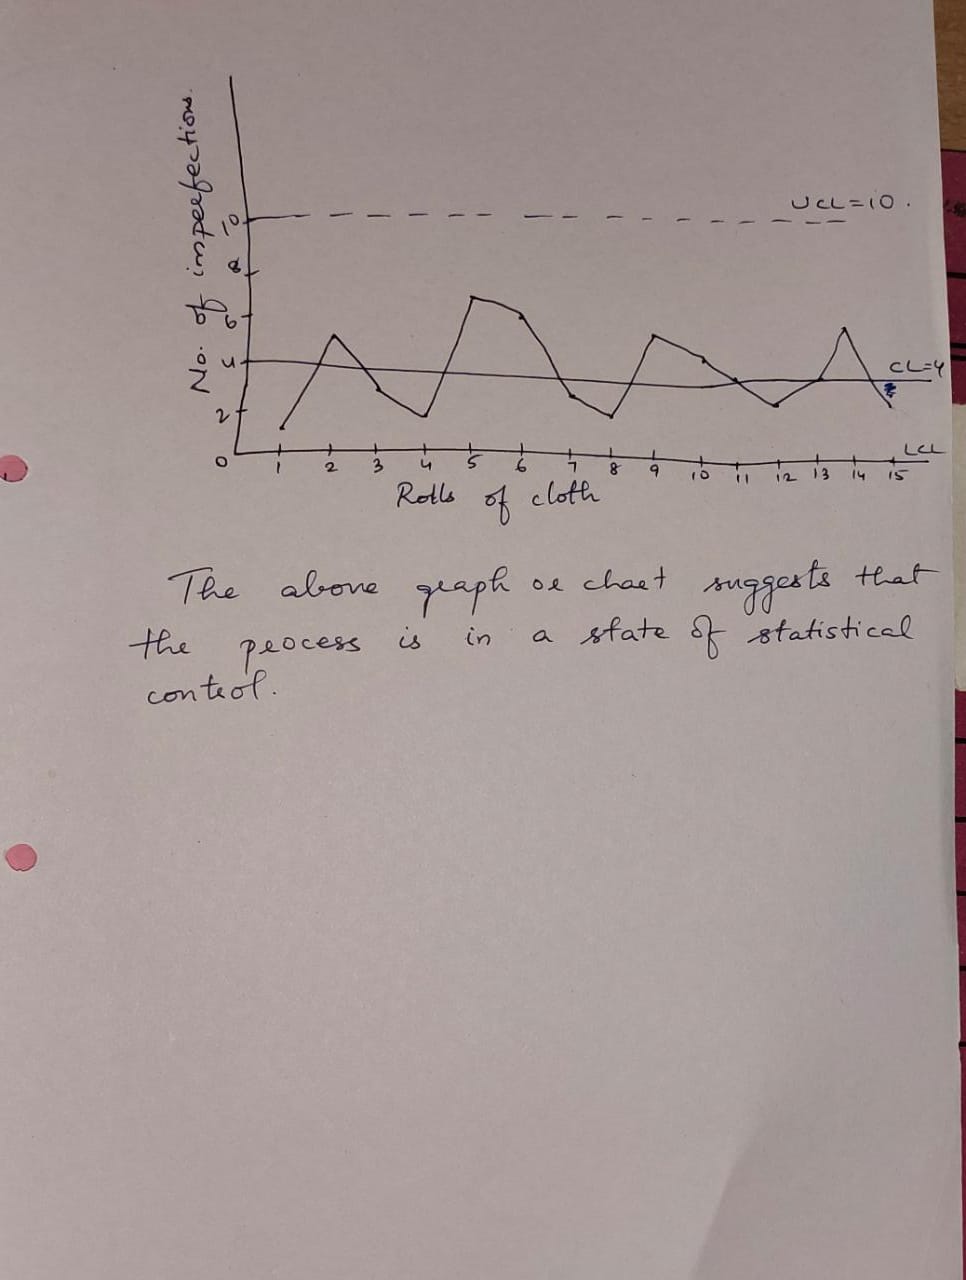 No. of imperfections.
10
8
6
4
2
0
UCL=10.
CL=4
LCL
1 2 3 4 5 6 7 8 9 10 11 12 13 14 15
Rolls of cloth
The above graph or chart suggests that
the process is in a state of statistical
control.